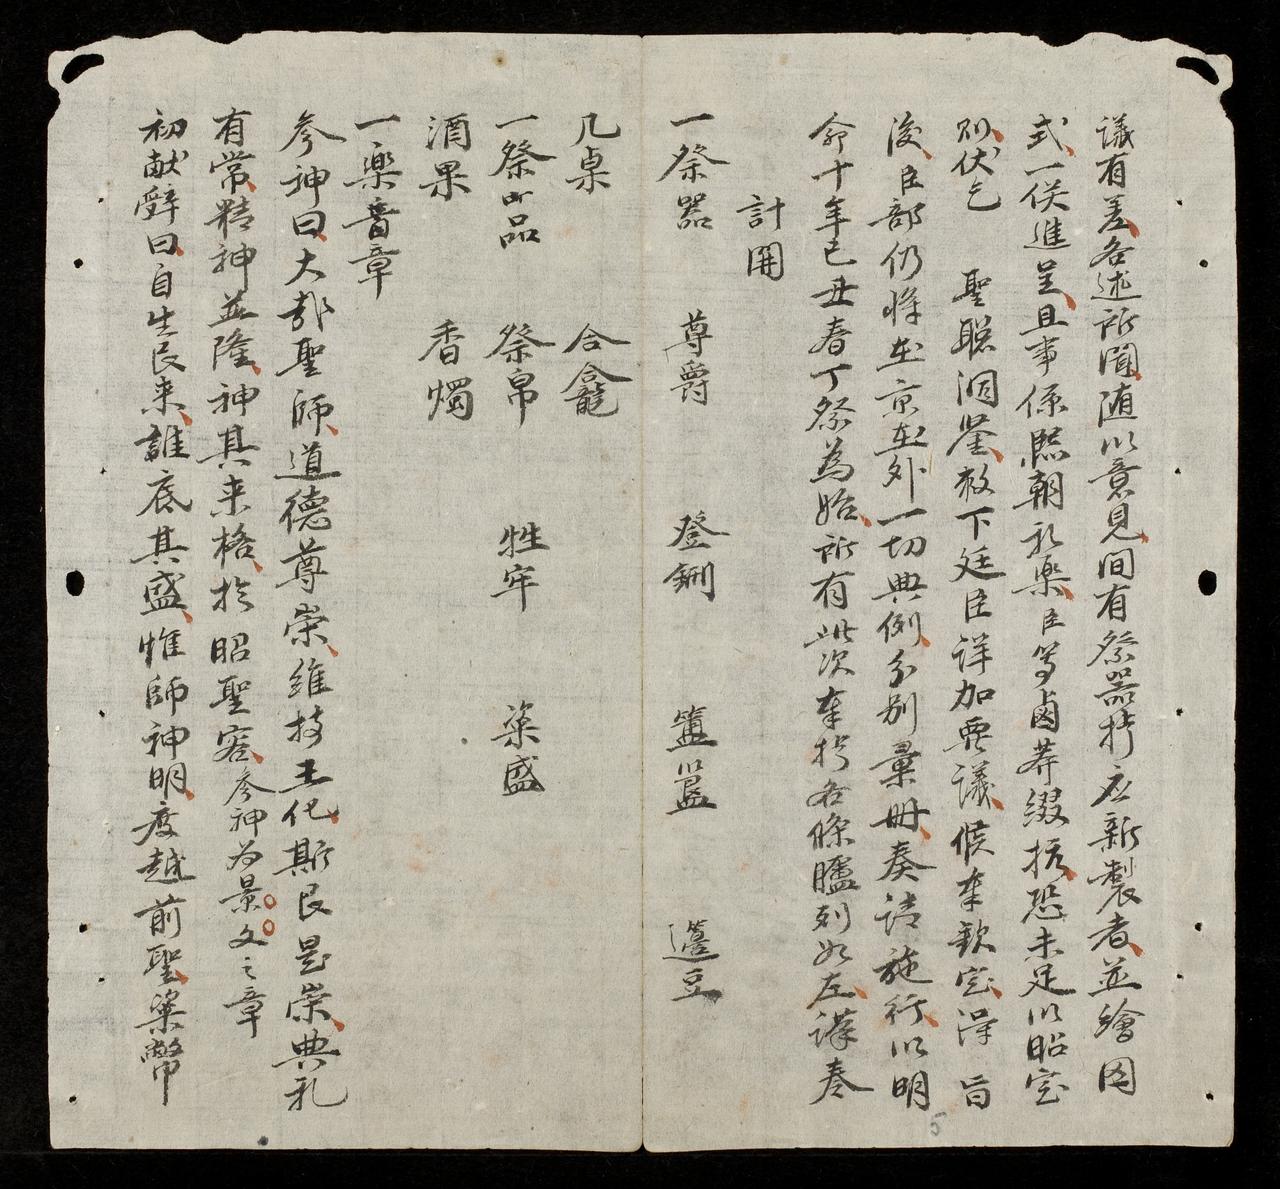 議有差各述所聞随以意見間有祭器抃应新製者並繪图
式一俟進呈且事係熙朝礼楽臣等鹵莽綴拾恐未足以昭定
则伏乞 聖聡洞鉴敕下廷臣詳加要議候奉欽定得旨
後臣部仍将在京在外一切典例分别彙冊奏請施行以明
命十年己丑春丁祭為始所有此次奉抃各條臚列如左謹奏
計開
一祭器 尊爵 登鉶 簠簋 籩豆
几桌 合龕
一祭品 祭帛 牲牢 粢盛
酒果 香燭
一楽音章
参神曰大哉聖師道德尊崇維持王化斯民是崇典礼
有常精神並隆神其来格於昭聖容参神为景文之章
初献辞曰自生民来誰底其盛惟師神明度越前聖粢幣
5